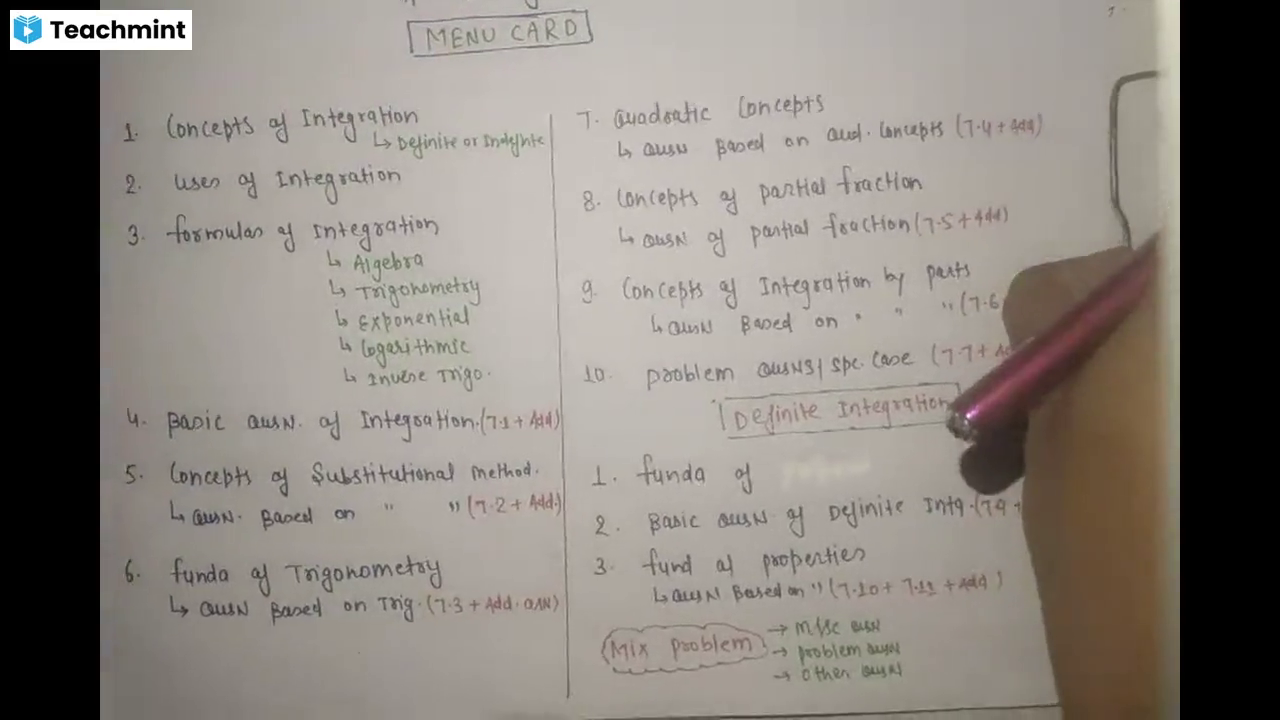 Teachmint
MENU CARD
1. Concepts of Integration
↳ Definite or Indefinite
2. Uses of Integration
3. formulas of Integration
↳ Algebra
↳ Trigonometry
↳ Exponential
↳ Logarithmic
↳ Inverse Trigo.
4. Basic QusN. of Integration.(7.1 + Add)
5. Concepts of Substitutional method.
↳ QusN. Based on " " (7.2 + Add.)
6. funda of Trigonometry
↳ QusN Based on Trig. (7.3 + Add. QSN)
7. Quadratic Concepts
↳ QusN Based on Qud. Concepts (7.4 + Add)
8. Concepts of partial fraction
↳ QusN of partial fraction (7.5 + Add)
9. Concepts of Integration by parts
↳ QusN Based on " " " (7.6
10. problem QusNs/ Spc. Case (7.7 +
Definite Integration
1. funda of
2. Basic QusN of Definite Intg. (7.9 +
3. fund of properties
↳ QusN Based on " (7.10 + 7.11 + Add)
Mix problem
→ misc QusN
→ problem QusN
→ other QusN